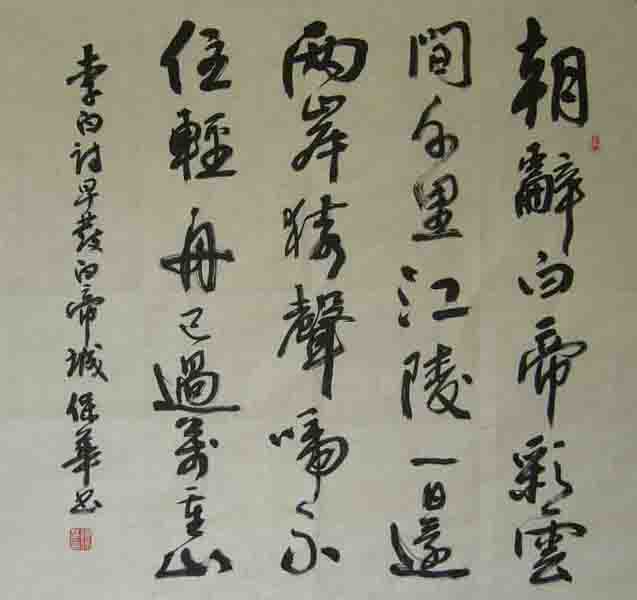 朝辭白帝彩雲
間千里江陵一日還
兩岸猿聲啼不
住輕舟已過萬重山
李白詩早發白帝城 保華書